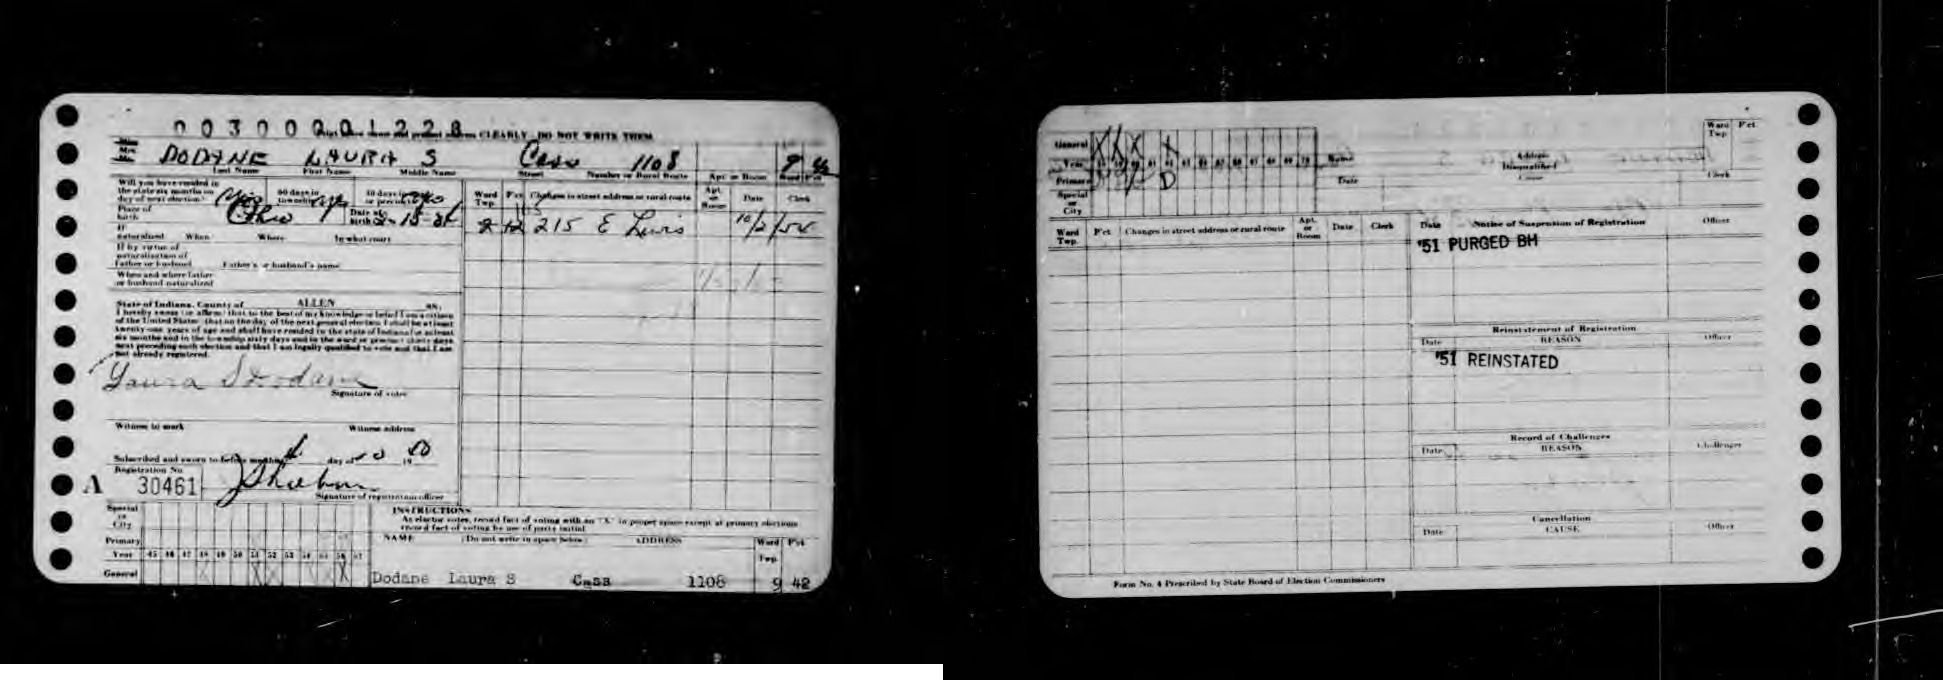 0030000122B
CLEARLY DO NOT WRITE THEM
DODANE LAURA S Cass 1108 9 42
Last Name First Name Middle Name Street Number or Rural Route Apt or Room Ward P'ct
Will you have resided in the state six months on day of next election? Yes 60 days in township yes 30 days in or precinct yes
Place of birth Ohio Date of birth
If naturalized When Where In what court
If by virtue of naturalization of father or husband Father's or husband's name
When and where father or husband naturalized
Ward Twp. P'ct Changes in street address or rural route Apt. or Room Date Clerk
2 12 215 E Lewis 10/2/58
State of Indiana, County of ALLEN ss.
I hereby swear (or affirm) that to the best of my knowledge or belief I am a citizen
of the United States; that on the day of the next general election I shall be at least
twenty-one years of age and shall have resided in the state of Indiana for at least
six months and in the township sixty days and in the ward or precinct thirty days
next preceding such election and that I am legally qualified to vote and that I am
not already registered.
Laura S Dodane
Signature of voter
Witness to mark Witness address
Subscribed and sworn to before me this day of 19
Registration No.
A 30461
Signature of registration officer
Special or City
Primary
Year 45 46 47 48 49 50 51 52 53 54 55 56 57
General X X X X
INSTRUCTIONS
As elector votes, record fact of voting with an "X" in proper space except at primary elections
record fact of voting by use of party initial
NAME (Do not write in space below) ADDRESS Ward Twp. P'ct
Dodane Laura S Cass 1108 9 42
General X X X X
Year
Primary D
Special or City
Name Address Ward Twp. P'ct
Disqualified
Date Cause Clerk
Ward Twp. P'ct Changes in street address or rural route Apt. or Room Date Clerk
Date Notice of Suspension of Registration Officer
'51 PURGED BH
Reinstatement of Registration
Date REASON Officer
'51 REINSTATED
Record of Challenges
Date REASON Challenger
Cancellation
Date CAUSE Officer
Form No. 4 Prescribed by State Board of Election Commissioners